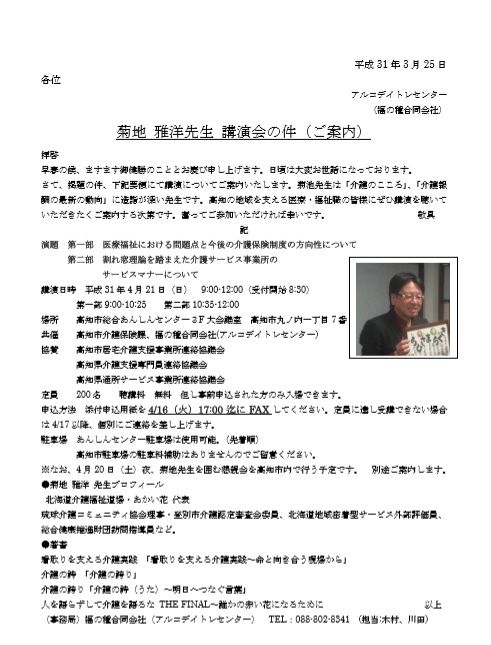 平成 31 年 3 月 25 日
各位
アルコデイトレセンター
（福の種合同会社）
菊地 雅洋先生 講演会の件（ご案内）
拝啓
早春の候、ますます御健勝のこととお慶び申し上げます。日頃は大変お世話になっております。
さて、掲題の件、下記要領にて講演についてご案内いたします。菊池先生は「介護のこころ」、「介護報
酬の最新の動向」に造詣が深い先生です。高知の地域を支える医療・福祉職の皆様にぜひ講演を聴いて
いただきたくご案内する次第です。奮ってご参加いただければ幸いです。 敬具
記
演題 第一部 医療福祉における問題点と今後の介護保険制度の方向性について
第二部 割れ窓理論を踏まえた介護サービス事業所の
サービスマナーについて
講演日時 平成 31 年 4 月 21 日（日） 9:00-12:00（受付開始 8:30）
第一部 9:00-10:25 第二部 10:35-12:00
場所 高知市総合あんしんセンター３F 大会議室 高知市丸ノ内一丁目 7 番
共催 高知市介護保険課、福の種合同会社(アルコデイトレセンター)
協賛 高知市居宅介護支援事業所連絡協議会
高知県介護支援専門員連絡協議会
高知県通所サービス事業所連絡協議会
定員 200 名 聴講料 無料 但し事前申込された方のみ入場できます。
申込方法 添付申込用紙を 4/16（火）17:00 迄に FAX してください。定員に達し受講できない場合
は 4/17 以降、個別にご連絡を差し上げます。
駐車場 あんしんセンター駐車場は使用可能。（先着順）
高知市営駐車場の駐車料補助はありませんのでご留意ください。
※なお、4 月 20 日（土）夜、菊地先生を囲む懇親会を高知市内で行う予定です。 別途ご案内します。
●菊地 雅洋 先生プロフィール
北海道介護福祉道場・あかい花 代表
琉球介護コミュニティ協会理事・登別市介護認定審査会委員、北海道地域密着型サービス外部評価員、
総合健康推進財団訪問指導員など。
●著書
看取りを支える介護実践 「看取りを支える介護実践～命と向き合う現場から」
介護の誇 「介護の誇り」
介護の詩 「介護の詩（うた）～明日へつなぐ言葉」
人を語らずして介護を語るな THE FINAL～誰かの赤い花になるために 以上
（事務局）福の種合同会社（アルコデイトレセンター） TEL：088-802-8341 （担当:木村、川田）